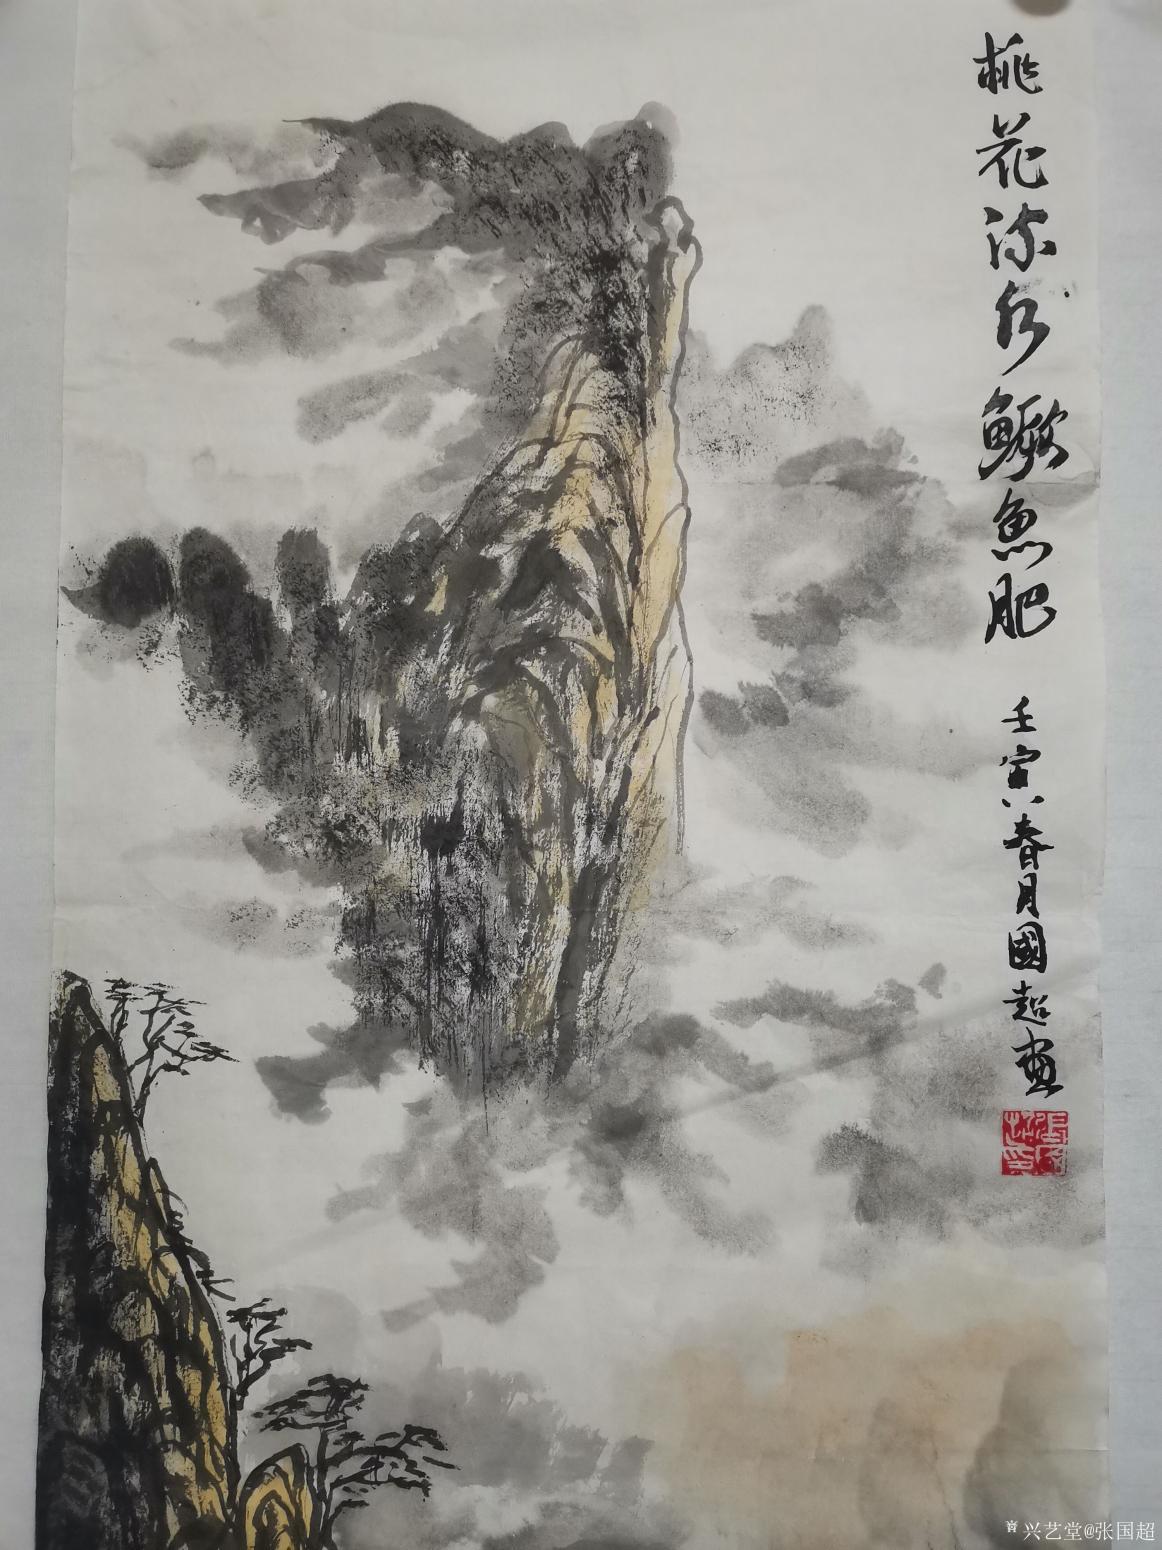 桃花流水鳜鱼肥
壬寅八春月國超画
兴艺堂@张国超